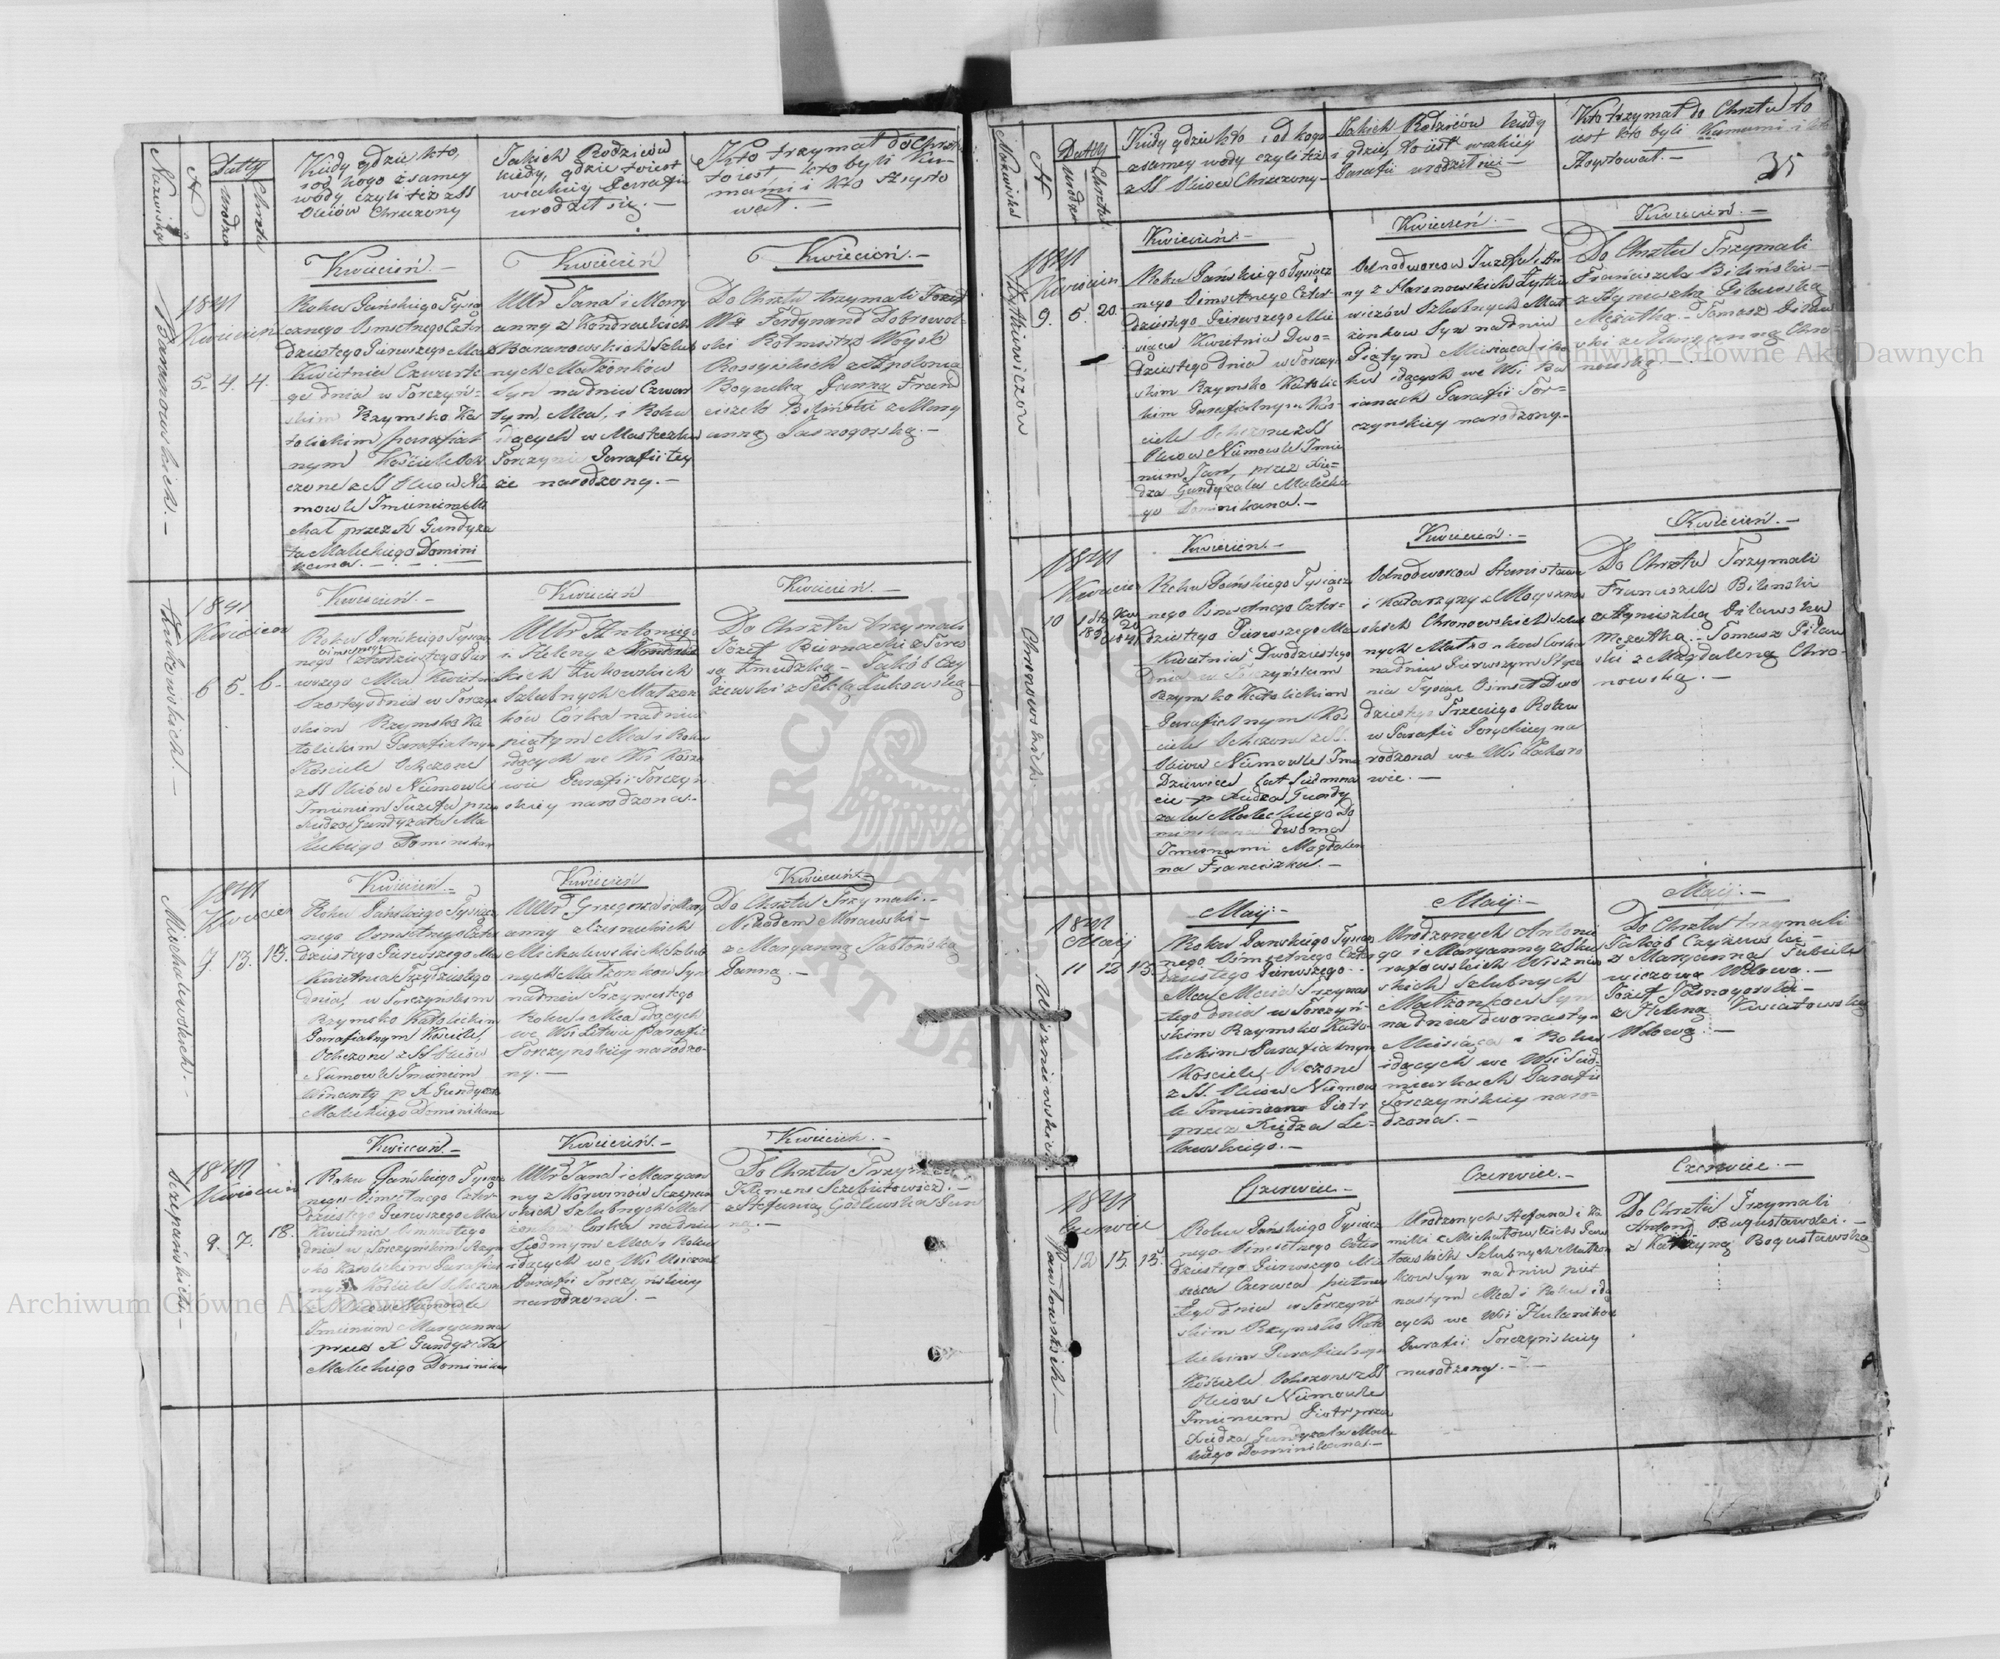 Nazwiska
N
Datty
Urodze
Chrztu
Kiedy gdzie kto,
i od kogo z samey
wody, czyli też z SS
Oleiów Chrzczony
Jakich Rodziców
kiedy, gdzie to iest
w iakiey Parafii
urodził się. —
Kto trzymał do Chrztu
to iest kto byli Ku-
mami i kto Assysto
wał. —
Baranowskich. —
1841
Kwiecień
5. 4. 4.
Kwiecień. —
Roku Pańskiego Tysią
cznego Osmsetnego Czter
dziestego Pierwszego Mca
Kwietnia Czwarte
go dnia w Torczyń-
skim Rzymsko Ka
tolickim parafial
nym Kościele Och
czone z SS Oleiow Nie
mowle Imieniem Mi
chał przez X Gundyza
la Maleckiego Domini
kana. —
Kwiecień
Ur Jana i Mary
anny z Kondrackich
Baranowskich Szlub
nych Małżonków
Syn na dniu Czwar
tym, Mca, i Roku
idących w Miasteczku
Torczynie Parafii tey
że narodzony. —
Kwiecień. —
Do Chrztu trzymali
Ferdynand Dobrowol-
ski Rotmistrz Woysk
Rossyiskich z Apolonią
Panną Fran
ciszek Biliński z Mary
anną Jasnogorską. —
Żukowskich. —
1841
Kwiecień
6 5. 6.
Kwiecień. —
Roku Pańskiego Tysią
osmsetnego
nego Czterdziestego Pier
wszego Mca Kwietnia
Szostego dnia w Torczyń
skim Rzymsko Ka
tolickim Parafialnym
Kościele Ochczone
z SS Oleiów Niemowle
Imieniem Józefa przez
Xiędza Gundyzala Ma
leckiego Dominikana
Kwiecień
Ur Antoniego
i Heleny z
Żukowskich
Szlubnych Małżon
ków Córka na dniu
piątym Mca i Roku
idących we Wsi
Parafii Torczyn
skiey narodzona. —
Kwiecień. —
Do Chrztu trzymali
Józef Biernacki z Teres
są Żmudzką — Jakób Czy
żewski z Teklą Żukowską
Michalewskich. —
1841
Kwiecień
7. 13. 13.
Kwiecień. —
Roku Pańskiego Tysiącz
nego Osmsetnego Czter
dziestego Pierwszego Mca
Kwietnia Trzynastego
dnia, w Torczynskim
Rzymsko Katolickim
Parafialnym Kościele,
Ochczone z SS Oleiów
Niemowle Imieniem
Wincenty p X Gundyzala
Maleckiego Dominikana
Kwiecień
Ur Grzegorza i Mary
anny z
Michalewskich Szlub
nych Małżonków Syn
na dniu Trzynastego
Roku i Mca idących
we Wsi Litwie parafii
Torczynskiey narodzo-
ny. —
Kwiecień. —
Do Chrztu Trzymali. —
Nikodem Morawski —
z Maryanną Jabłońską
Panną. —
Szczepańskich. —
1841
Kwiecień
8. 7. 18.
Kwiecień. —
Roku Pańskiego Tysiącz
nego Osmsetnego Czter-
dziestego Pierwszego Mca
Kwietnia Osmnastego
dnia w Torczynskim Rzym
sko Katolickim Parafial
nym Kościele Ochczone
z Niemowle
Imieniem Maryanna
przez X Gundyzala
Maleckiego Dominikana
Kwiecień. —
Ur Jana i Maryan
ny z Korwinów Szczepań
skich Szlubnych Mał-
żonków Corka na dniu
Siódmym Mca i Roku
idących we Wsi
Parafii Torczyńskiey
narodzona. —
Kwiecień. —
Do Chrztu Trzymali
Klemens
z Stefanią Godlewską Pan
ną. —
Nazwiska
N
Datty
Urodze
Chrztu
Kiedy gdzie kto i od kogo
z samey wody czyli też
z SS Oleiow Chrzczony —
Jakich Rodziców kiedy
i gdzie, to iest w iakiey
Parafii urodził się —
Kto trzymał do Chrztu to
iest kto byli Kumami i kto
Assystował. —
35
Żytkiewiczow
1841
Kwiecien
9. 5. 20.
Kwiecień. —
Roku Pańskiego Tysiącz
nego Osmsetnego Czter-
dziestego Pierwszego Mie
siąca Kwietnia Dwu-
dziestego dnia w Torczyn
skim Rzymsko Katolic
kim Parafialnym Koś-
ciele Ochczone z SS
Oleiow Niemowle Imie
niem Jan, przez Xię-
dza Gundyzala Maleckie
go Dominikana. —
Kwiecień. —
Odnodworcow Józefa i An
ny z Haranowskich Żytkie
wiczów Szlubnych Mał
żonkow Syn na dniu
Piątym Miesiąca i Ro
ku idących we Wsi Bo
ianach Parafii Tor-
czynskiey narodzony. —
Kwiecień. —
Do Chrztu Trzymali
Franciszek Biliński —
z Agnieszką Pilawską
Mężatką — Tomasz Pilaw
ski z Maryanną Chro-
nowską. —
Chronowskich
1841
Kwiecien
10
Kwiecień. —
Roku Pańskiego Tysiącz
nego Osmsetnego Czter-
dziestego Pierwszego Mca
Kwietnia Dwudziestego
dnia w Torczyńskim
Rzymsko Katolickim
Parafialnym Koś
ciele Ochczona z SS.
Oleiow Niemowle Ima
Dziewice Lat Siedmna
cie p Xiędza Gundy
zala Maleckiego Do
minikana dwoma
Imionami Magdale
na Franciszka. —
Kwiecień. —
Odnodworcow Stanisława
i Katarzyny z
Chronowskich Szlub
nych Małżonkow Corka
na dniu Pierwszym Stycz
nia Tysiąc Osmset Dwu
dziestego Trzeciego Roku
w Parafii Poryckiey na
rodzona we Wsi Zaharo
wie. —
Kwiecień. —
Do Chrztu Trzymali
Franciszek Bilinski
z Agnieszką Pilawską
Mężatką. — Tomasz Pilaw
ski z Magdaleną Chro-
nowską. —
Wiszniewskich
1841
Maij
11 12 13.
Maij: —
Roku Panskiego Tysiącz
nego Osmsetnego Czter
dziestego Pierwszego
Mca Maia Trzynas
tego dnia w Torczyń
skim Rzymsko Kato
lickim Parafialnym
Kosciele, Ochczone
z SS. Oleiow Niemow
le Imieniem Piotr
przez Xiędza Le-
wskiego. —
Maij: —
Urodzonych Antonie
go i Maryanny z Sku
ratowskich Wiszniew
skich Szlubnych
Małżonkow Syn
na dniu dwunastym
Miesiąca i Roku
idących we Wsi Sad-
Parafii
Torczynskiey naro-
dzona. —
Maij: —
Do Chrztu trzymali
Jakób Czyżewski —
z Maryanną
Wdową. —
Józef Jasnogorski —
z Heleną Kwiatowską
Wdową: —
Pawłowskich —
1841
Czerwiec
12 15. 15.
Czerwiec —
Roku Pańskiego Tysiącz
nego Osmsetnego Czter
dziestego Pierwszego Mie
siąca Czerwca piętnas
tego dnia w Torczyń
skim Rzymsko Kato
lickim Parafialnym
Kościele Ochczone z SS
Oleiow Niemowle
Imieniem Piotr przez
Xiędza Gundyzala Male
ckiego Dominikana —
Czerwiec. —
Urodzonych Stefana i Ka
milli z Michałowskich Paw
łowskich Szlubnych Małżon
kow Syn na dniu pięt
nastym Mca i Roku idą
cych we Wsi
Parafii Torczyńskiey
narodzony. —
Czerwiec. —
Do Chrztu Trzymali
Antoni Bogusławski. —
z Bogusławską
Archiwum Główne Akt Dawnych
Archiwum Główne Akt Dawnych
ARCHIWUM GŁÓWNE AKT DAWNYCH